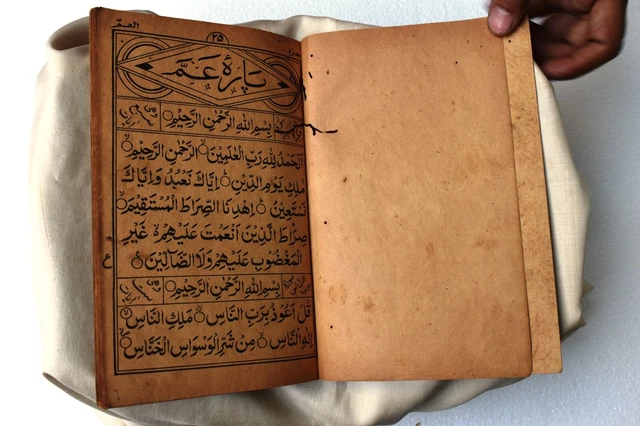 العمّ
۲۵
پارۂ عَمَّ
بِسْمِ اللهِ الرَّحْمٰنِ الرَّحِيْمِ
اَلْحَمْدُ لِلّٰهِ رَبِّ الْعٰلَمِيْنَ الرَّحْمٰنِ الرَّحِيْمِ
مٰلِكِ يَوْمِ الدِّيْنِ اِيَّاكَ نَعْبُدُ وَاِيَّاكَ
نَسْتَعِيْنُ اِهْدِنَا الصِّرَاطَ الْمُسْتَقِيْمَ
صِرَاطَ الَّذِيْنَ اَنْعَمْتَ عَلَيْهِمْ غَيْرِ
الْمَغْضُوْبِ عَلَيْهِمْ وَلَا الضَّآلِّيْنَ
ع
بِسْمِ اللهِ الرَّحْمٰنِ الرَّحِيْمِ
قُلْ اَعُوْذُ بِرَبِّ النَّاسِ مَلِكِ النَّاسِ
اِلٰهِ النَّاسِ مِنْ شَرِّ الْوَسْوَاسِ الْخَنَّاسِ